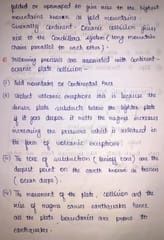 folded or upwarped to give rise to the highest
mountains known as fold mountains
Generally continent - Oceanic collision gives
rise to the Cordillera system (long mountain
chains parallel to each other).
Following processes are associated with continent-
oceanic plate collision -
(i) Fold mountains or Continental trac
(ii) Violent volcanic eruptions this is because the
denser plate subducts below the lighter plate
if it goes deeper it melts the magma increases
increasing the pressure which is released in
the form of volcanic eruptions.
(iii) The zone of subduction (benioff zone) are the
deepest point on the earth known as trenches
(ocean deeps)
(iv) The movement of the plate, collision and the
rise of magma causes earthquakes hence
all the plate boundaries are prone to
earthquakes.